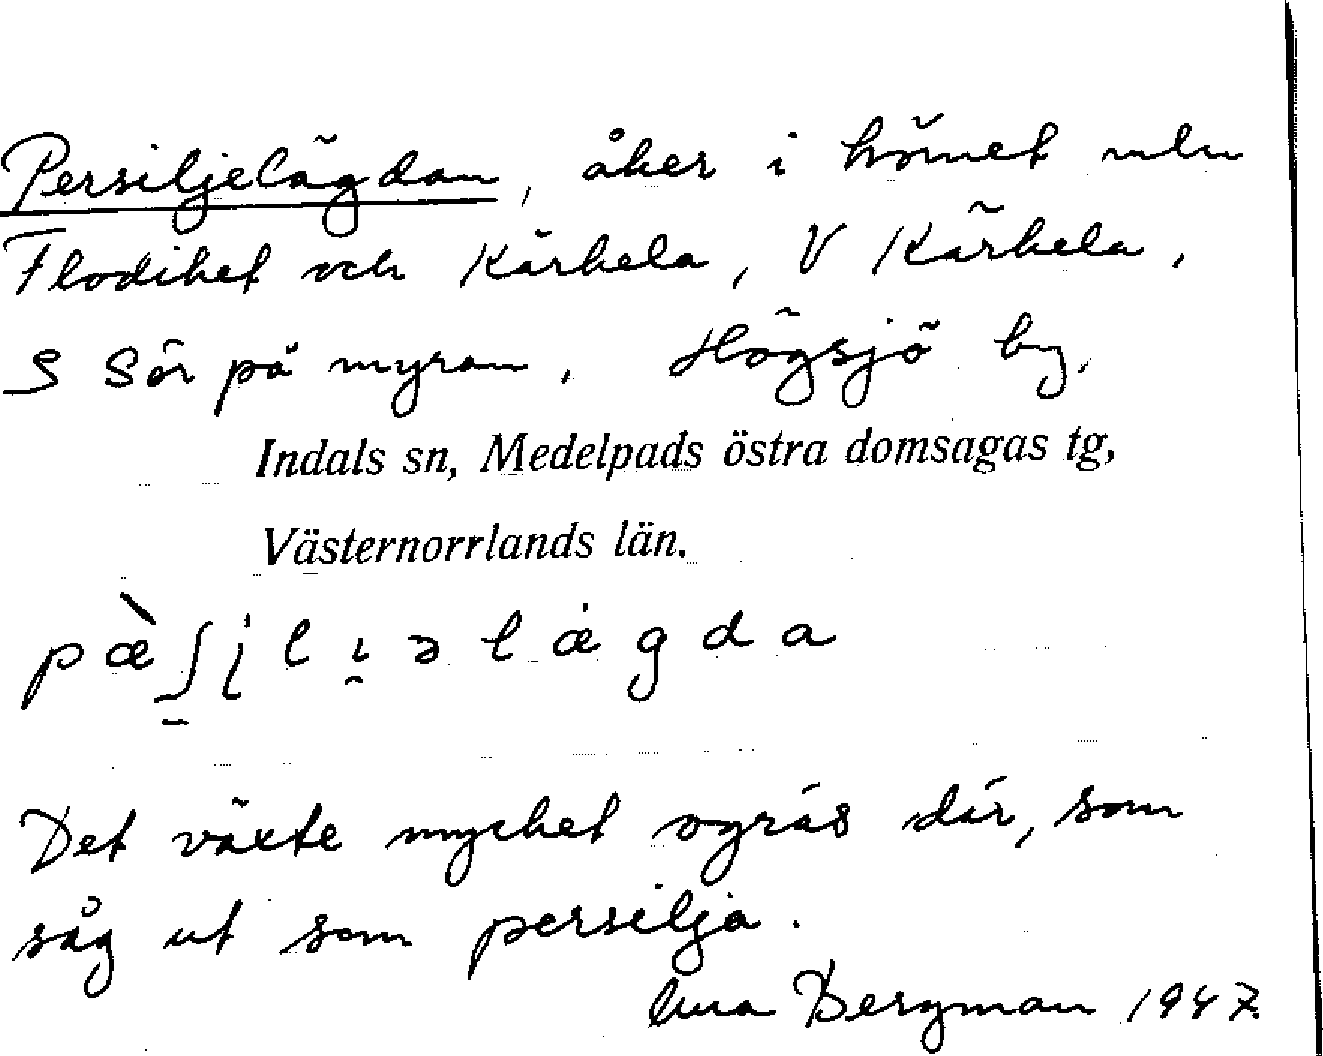 Persiljelägdan, åker i hörnet mln
Flodiket och Kärkela, V Kärkela,
S Sör på myran. Högsjö by,
Indals sn, Medelpads östra domsagas tg,
Västernorrlands län.
Det växte mycket ogräs där, som
såg ut som persilja.
Bergman 1947